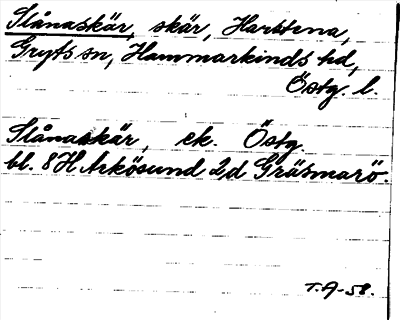 Slånaskär, skär, Harstena,
Gryts sn, Hammarkinds hd,
Östg. l.
Slånaskär, ek. Östg.
bl. 8H Arkösund 2d Gräsmarö.
T.A-58.